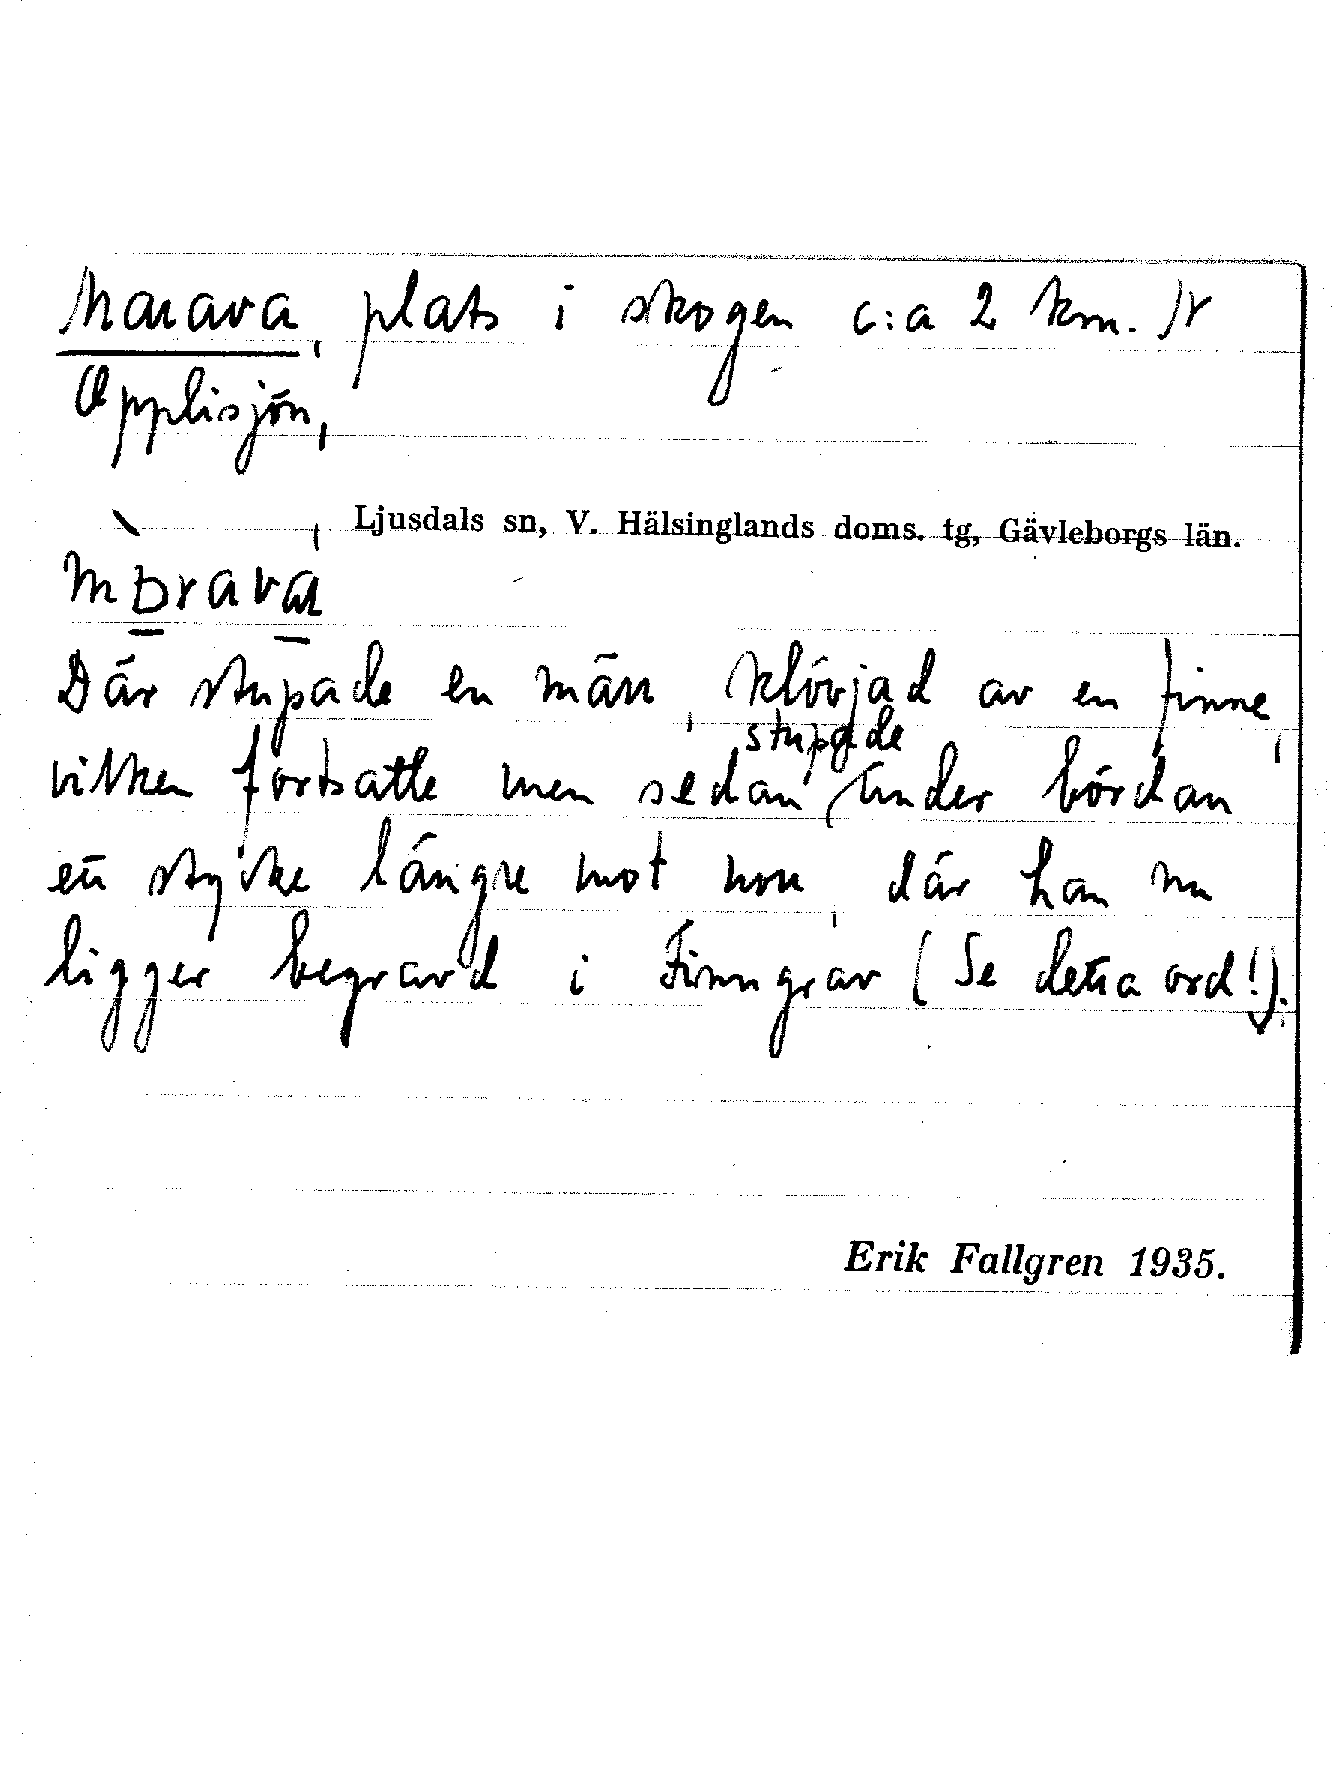 Marava, plats i skogen c:a 2 km. N
Applisjön,
Ljusdals sn, V. Hälsinglands doms. tg, Gävleborgs län.
Därstupade en män, klövjad av en finne,
vilken fortsatte men sedan stupade under bördan
ett stycke längre mot norr, där han nu
ligger begravd i Finngrav (Se detta ord!).
Erik Fallgren 1935.